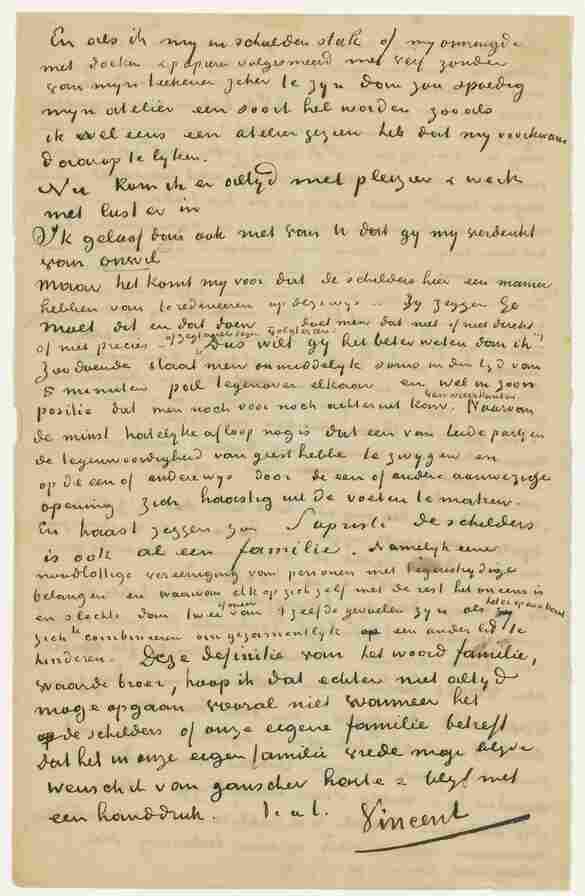 En als ik my in schulden stak of my omringde
met doeken & papier volgesmeerd met verf zonder
van myn teekenen zeker te zyn dan zou spoedig
myn atelier een soort hel worden zooals
ik wel eens een atelier gezien heb dat my voorkwam
daarop te lyken.
Nu kom ik er altyd met pleizier & werk
met lust er in
Ik geloof dan ook niet van U dat gy my verdenkt
van onwil
Maar het komt my voor dat de schilders hier een manier
hebben van te redeneeren op deze wys. Zy zeggen ge
moet dit en dat doen doet men dat niet of niet direkt
of niet precies of zegt men iets "Dus wilt gy het beter weten dan ik"
Zoodoende staat men onmiddelyk soms in den tyd van
5 minuten pal tegenover elkaar en wel in zoo'n
positie dat men noch voor noch achteruit kan. Waarvan
de minst hatelyke afloop nog is dat een van beide partyen
de tegenwoordigheid van geest hebbe te zwygen en
op de een of andere wys door de een of andere aanwezige
opening zich haastig uit de voeten te maken.
En haast zeggen zou Sapristi de schilders
is ook al een familie. Namelyk eene
noodlottige vereeniging van personen met tegenstrydige
belangen en waarvan elk op zich zelf met de rest het oneens is
en slechts dan twee of meer van 't zelfde gevoelen zyn als
zich te combineeren om gezamentlyk een ander lid te
hinderen. Deze definitie van het woord familie,
waarde broer, hoop ik dat echter niet altyd
moge opgaan vooral niet wanneer het
de schilders of onze eigene familie betreft
dat het in onze eigen familie vrede moge blyve
wensch ik van ganscher harte & blyf met
een handdruk. t. à t. Vincent